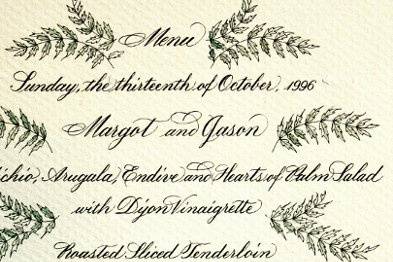 Menu
Sunday, the thirteenth of October, 1996
Margot and Jason
chio, Arugala, Endive and Hearts of Palm Salad
with Dijon Vinaigrette
Roasted Sliced Tenderloin